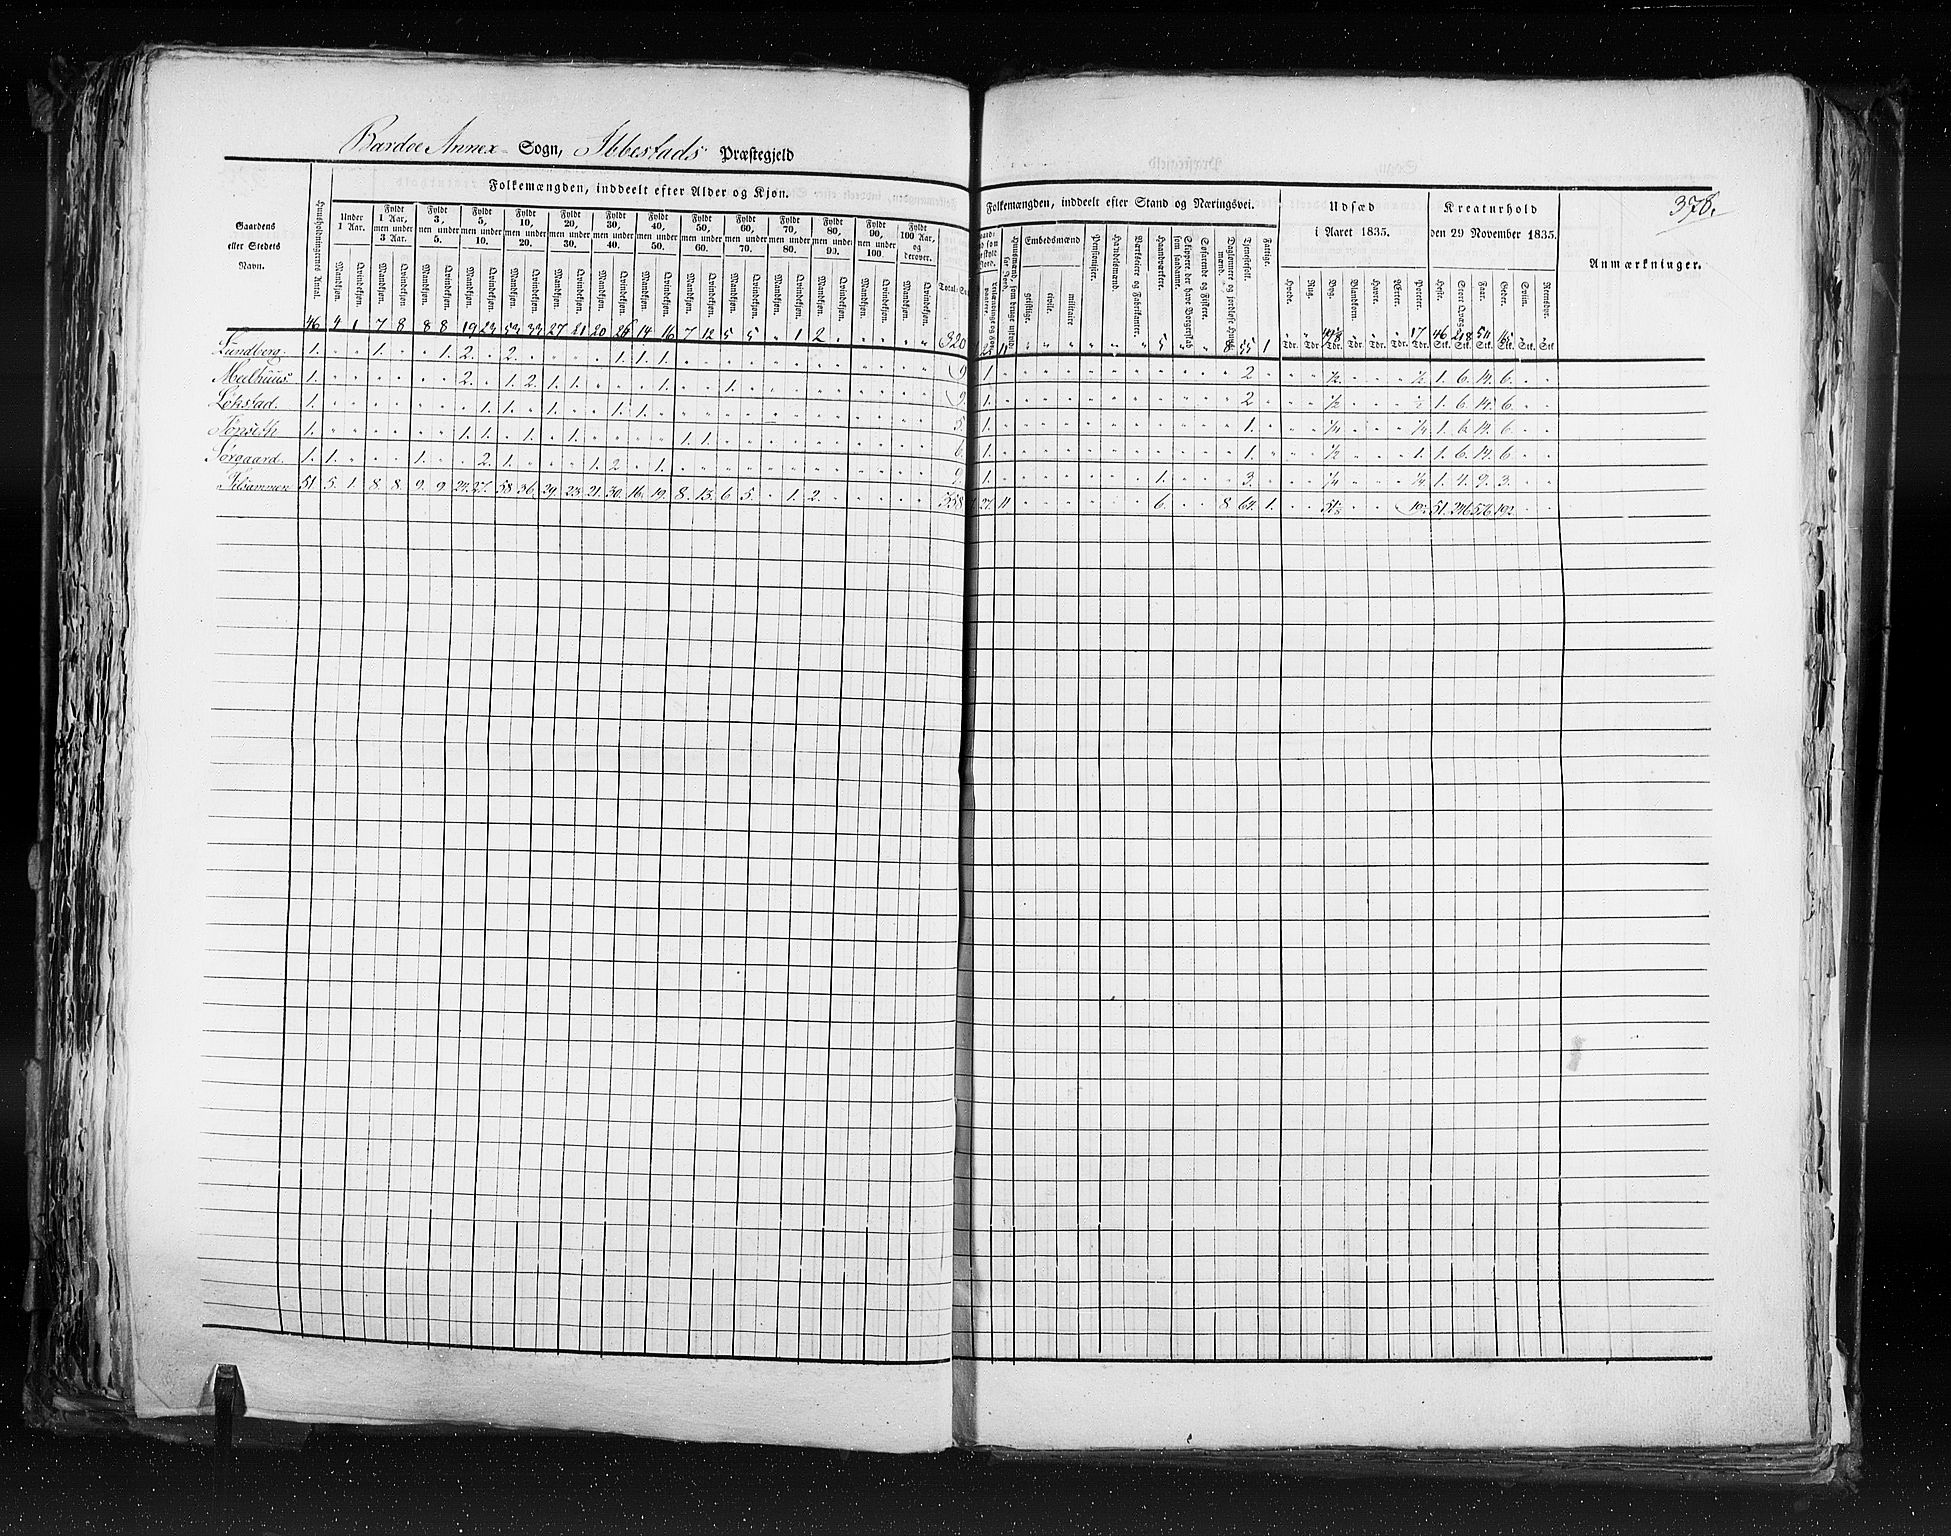 Bardoe Annex Sogn, Ibbestads Præstegjeld
378.
Gaardens eller Stedets Navn.
Huusholdningernes Antal.
Folkemængden, inddeelt efter Alder og Kjøn.
Under 1 Aar.
Fyldt 1 Aar, men under 3 Aar.
Fyldt 3, men under 5.
Fyldt 5, men under 10.
Fyldt 10, men under 20.
Fyldt 20, men under 30.
Fyldt 30, men under 40.
Fyldt 40, men under 50.
Fyldt 50, men under 60.
Fyldt 60, men under 70.
Fyldt 70, men under 80.
Fyldt 80, men under 90.
Fyldt 90, men under 100.
Fyldt 100 Aar, og derover.
Mandkjøn. Qvindekjøn. Mandkjøn. Qvindekjøn. Mandkjøn. Qvindekjøn. Mandkjøn. Qvindekjøn. Mandkjøn. Qvindekjøn. Mandkjøn. Qvindekjøn. Mandkjøn. Qvindekjøn. Mandkjøn. Qvindekjøn. Mandkjøn. Qvindekjøn. Mandkjøn. Qvindekjøn. Mandkjøn. Qvindekjøn. Mandkjøn. Qvindekjøn. Mandkjøn. Qvindekjøn. Mandkjøn. Qvindekjøn.
Folkemængden, inddeelt efter Stand og Næringsvei.
Huusmænd, som bruge udskilt for Jord.
Embedsmænd
geistlige. civile. militaire
Pensionister.
Handelsmænd.
Værkseiere og Fabrikanter.
Haandværkere.
Skippere der have Borgerskab som saadanne.
Søfarende og Fiskere.
Daglønnere og jordløse Huusmænd.
Tjenestefolk.
Fattige.
Udsæd i Aaret 1835.
Hvede. Rug. Byg. Blandkorn. Havre. Ærter. Poteter.
Tdr. Tdr. Tdr. Tdr. Tdr. Tdr. Tdr.
Kreaturhold den 29 November 1835.
Heste. Stort Qvæg. Faar. Geder. Sviin. Rensdyr.
Stk. Stk. Stk. Stk. Stk. Stk.
Anmærkninger.
46 4 1 7 8 8 8 19 23 53 33 27 21 20 26 14 16 7 12 5 5 " 1 2 " " 320
Lundberg. 1. 1. 1. 2. 2. 1. 1. 1. 9 1. 2 ½ ½ 1. 6. 14. 6.
Melhuus 1. 2. 1. 2. 1. 1. 1. 1. 9. 1. 2 ½ ½ 1. 6. 14. 6.
Løkstad. 1. 1. 1. 1. 1. 1. 5. 1. 1. ¼ ¼ 1. 6. 14. 6.
Fonseth 1. 1. 1. 1. 1. 1. 1. 6. 1. 1. ½ 1. 1. 6. 14. 6.
Sørgaard. 1. 1. 1. 2. 1. 1. 2 1. 9. 1. 1. 3. ¼ ¼ 1. 4. 9. 3.
Tilsammen 51 5. 1. 8. 8. 9. 9. 24. 27. 58. 36. 29. 23. 21. 30. 16. 19. 8. 13. 6. 5. 1. 2. 358 27. 11 6. 8. 64. 1. 51. 246 576 192